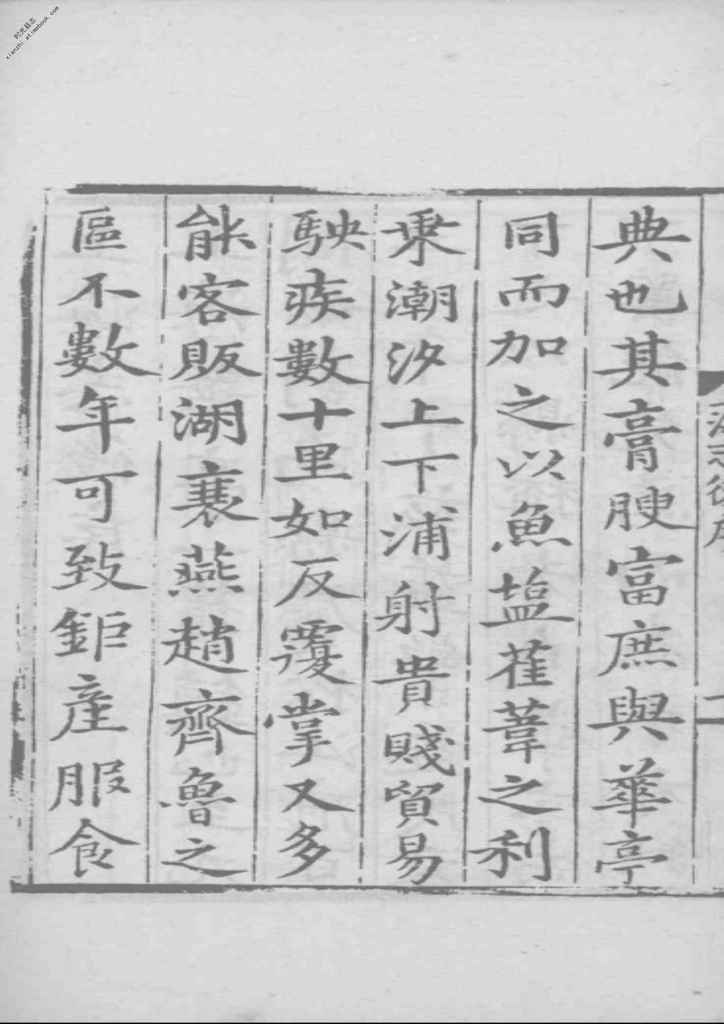 典也其膏腴富庶與華亭
同而加之以魚塩萑葦之利
乗潮汐上下浦射貴賤貿易
駚疾數十里如反覆掌又多
能客販湖襄燕趙齊魯之
區不數年可致鉅產服食